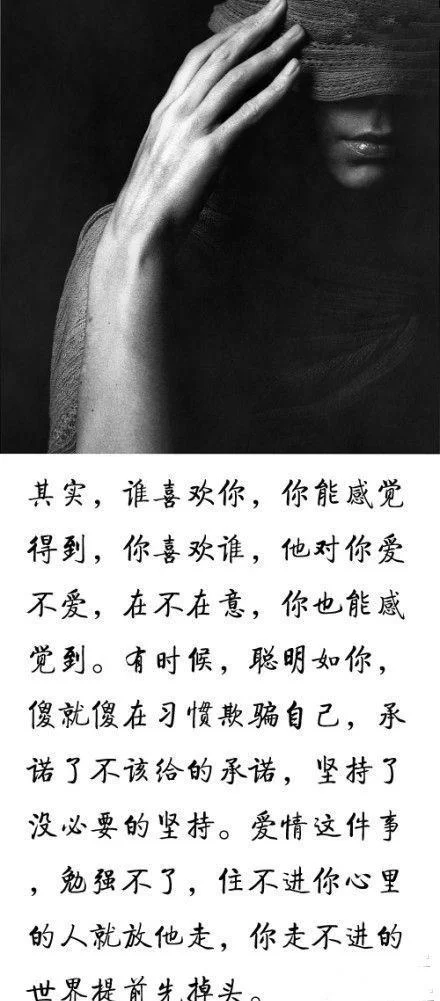 其实，谁喜欢你，你能感觉
得到，你喜欢谁，他对你爱
不爱，在不在意，你也能感
觉到。有时候，聪明如你，
傻就傻在习惯欺骗自己，承
诺了不该给的承诺，坚持了
没必要的坚持。爱情这件事
，勉强不了，住不进你心里
的人就放他走，你走不进的
世界提前先掉头。